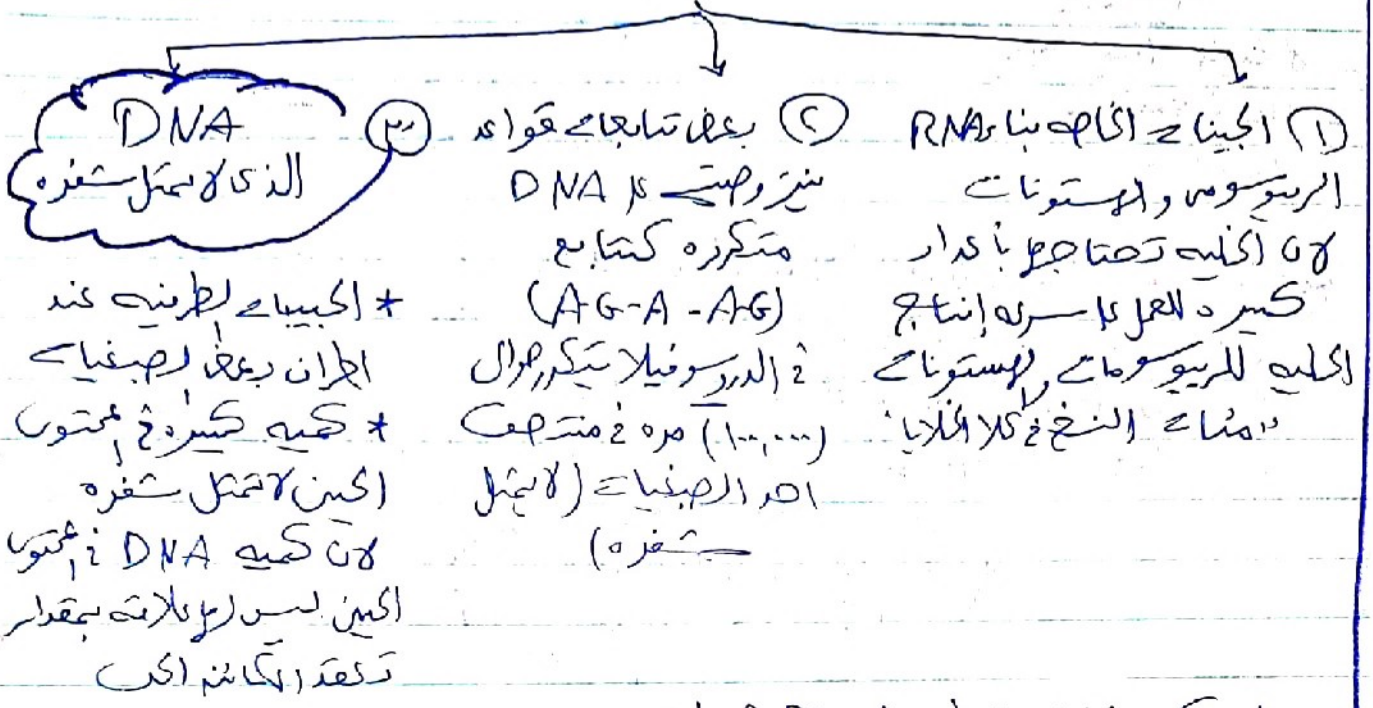 ① الجينات الخاصه ببناء RNA
الريبوسومى والهستونات
لان الخليه تحتاجها بأعداد
كبيره للعمل على سرعه إنتاج
الخليه للريبوسومات والهستونات
النسخ فى كلا الخلايا
② بعض تتابعات قواعد
DNA
متكرره كتتابع
(A-G-A-A-G)
فى الدروسوفيلا يتكرر حوالى
(١٠٠,٠٠٠) مره فى منتصف
احد الصبغيات (لا يمثل
شفره)
③ DNA
الذى لا يمثل شفره
* الحبيبات الطرفيه عند
اطراف بعض الصبغيات
* كميه كبيره فى المحتوى
الجينى لا تمثل شفره
لان كميه DNA فى المحتوى
الجينى ليس لها علاقه بمقدار
تعقد الكائن الحى